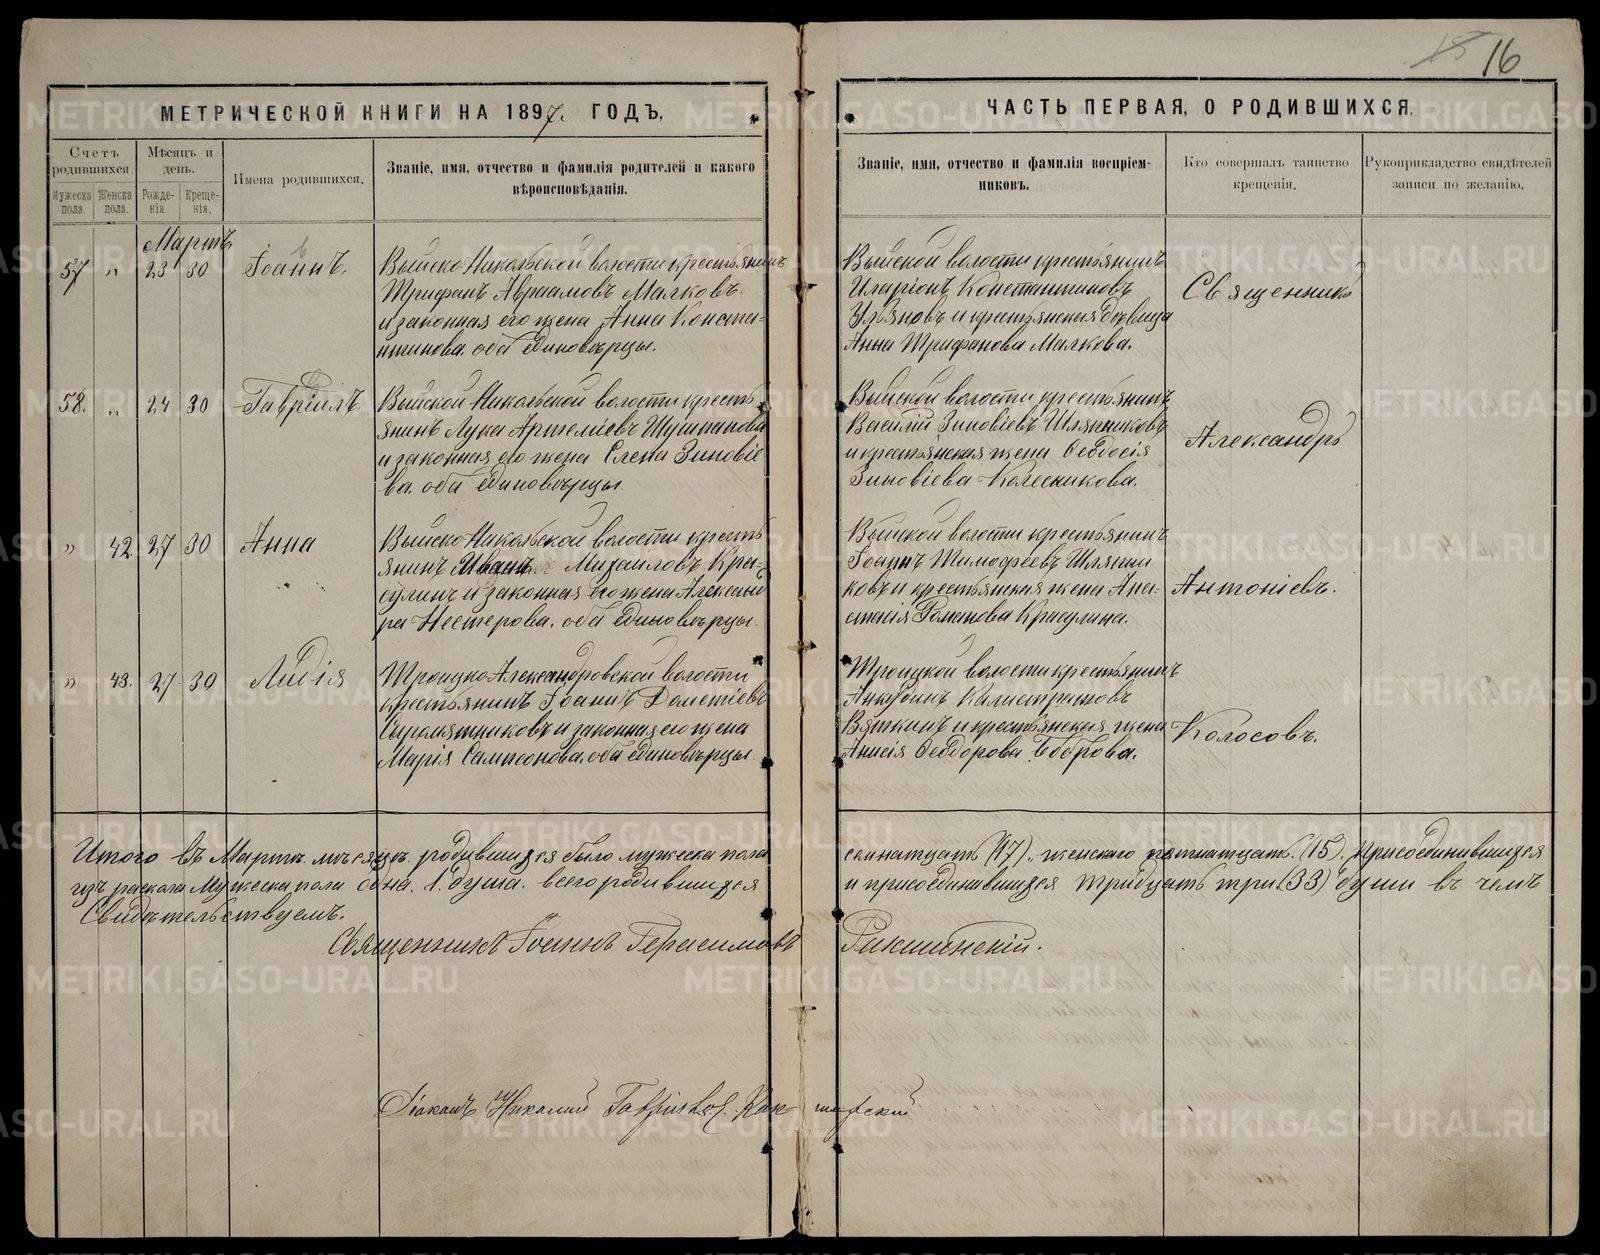 15 16
МЕТРИЧЕСКОЙ КНИГИ НА 1897. ГОДЪ,
ЧАСТЬ ПЕРВАЯ, О РОДИВШИХСЯ.
Счетъ родившихся.
Мужеска пола.
Женска пола.
Мѣсяцъ и день.
Рожде-нія.
Креще-нія.
Имена родившихся.
Званіе, имя, отчество и фамилія родителей и какого
вѣроисповѣданія.
Званіе, имя, отчество и фамилія воспріем-
никовъ.
Кто совершалъ таинство
крещенія.
Рукоприкладство свидѣтелей
записи по желанію.
Мартъ
57 " 23 30 Іоаннъ.
Выйско-Никольской волости крестьянинъ
Трифанъ Авраамовъ Малковъ
и законная его жена Анна Конста-
нтинова. оба Единовѣрцы.
Выйской волости крестьянинъ
Иларіонъ Константиновъ
Ульяновъ и крестьянская дѣвица
Анна Трифанова Малкова.
Священникъ
58. " 24 30 Гавріилъ
Выйской Никольской волости кресть
янинъ Лука Артеміевъ Шушпановъ
и законная его жена Елена Зиновіе
ва. оба Единовѣрцы
Выйской волости крестьянинъ
Василій Зиновіевъ Шляпниковъ
и крестьянская жена Ѳеодосія
Зиновіева Колесникова.
Александръ
" 42 27 30 Анна
Выйско-Никольской волости кресть
янинъ Иванъ Михаиловъ Кра-
сулинъ и законная его жена Александ
ра Нестерова. оба Единовѣрцы.
Выйской волости крестьянинъ
Іоаннъ Тимофеевъ Шляпни
ковъ и крестьянская жена Ана-
стасія Романова Красулина.
Антоніевъ.
" 43. 27 30 Лидія
Троицко Александровской волости
крестьянинъ Іоаннъ Дометіевъ
Сыромятниковъ и законная его жена
Марія Сампсонова. оба Единовѣрцы
Троицкой волости крестьянинъ
Калистратовъ
Вяткинъ и крестьянская жена
Анисія Ѳеодорова Боброва.
Колосовъ.
Итого въ Мартѣ мѣсяцѣ родившихся было мужеска пола
семнатцать (17), женскаго пятнатцать (15). Присоединившихся
изъ раскола Мужеска пола одна. 1. душа. всего родившихся
и присоединившихся тридцать три (33) души въ чемъ
Свидѣтельствуемъ.
Священникъ Іоаннъ Герасимовъ
Діаконъ Николай
METRIKI.GASO-URAL.RU